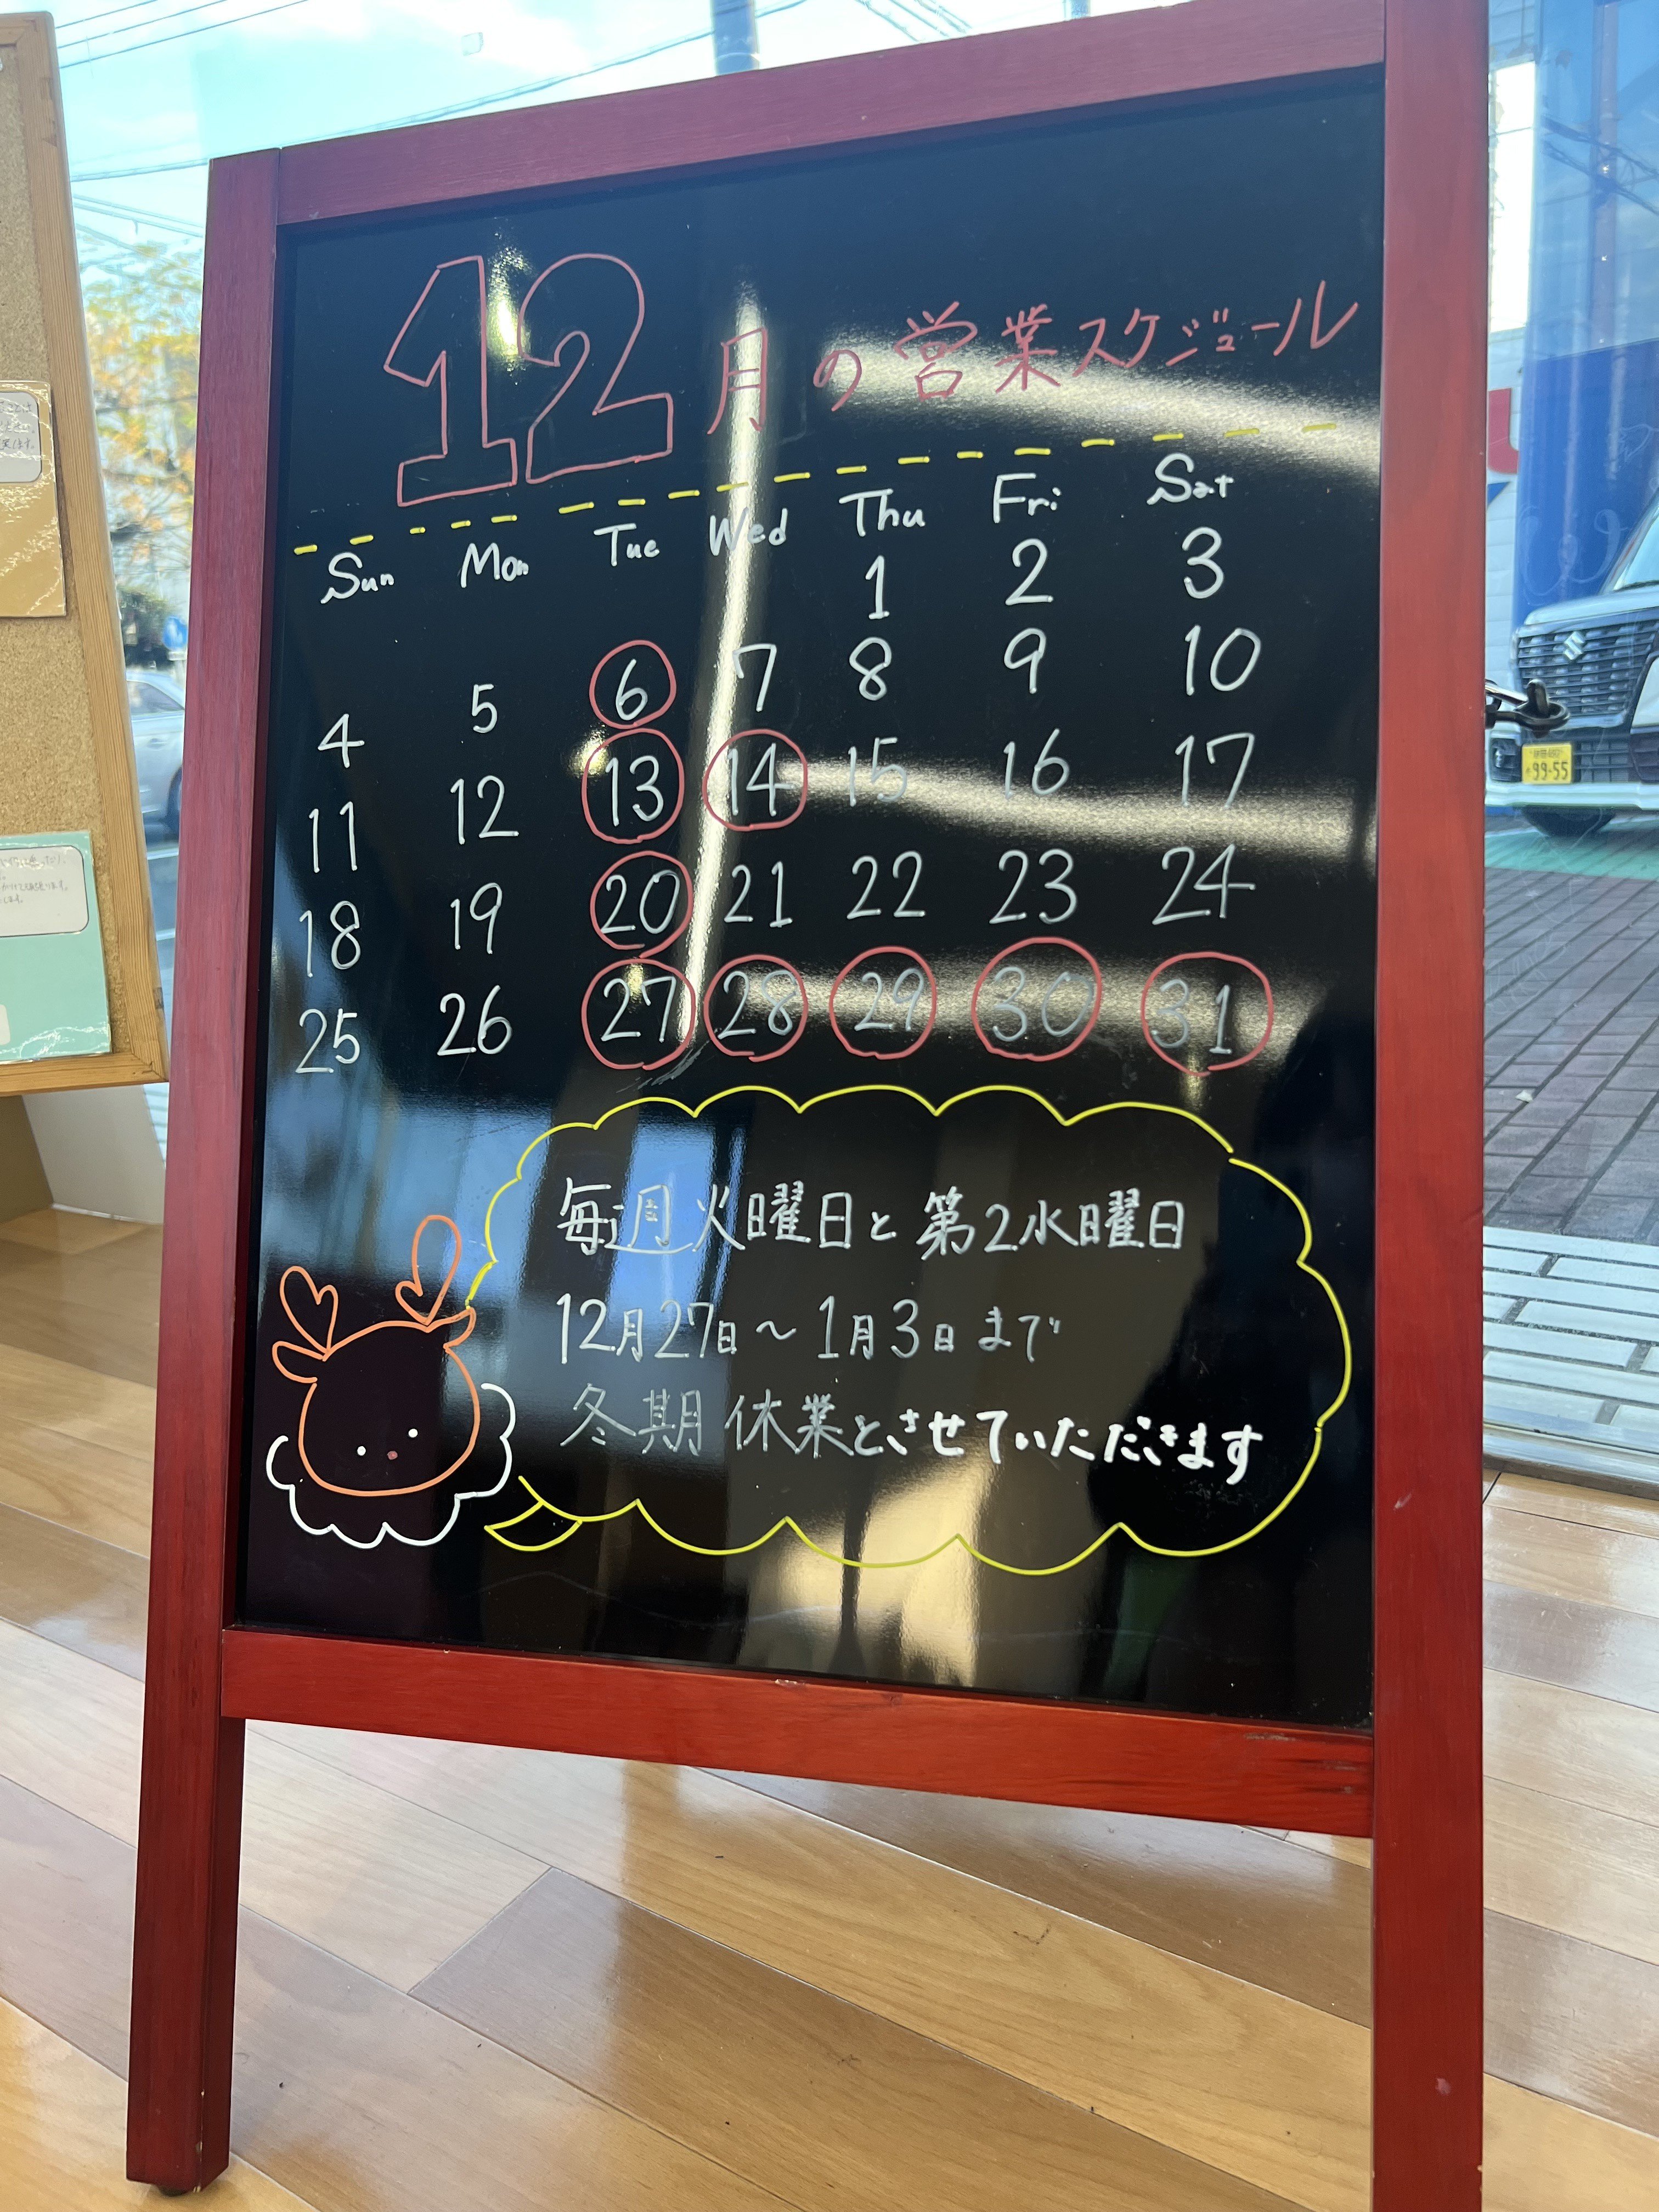 12月の営業スケジュール
Sun Mon Tue Wed Thu Fri Sat
1 2 3
4 5 6 7 8 9 10
11 12 13 14 15 16 17
18 19 20 21 22 23 24
25 26 27 28 29 30 31
毎週火曜日と第2水曜日
12月27日～1月3日まで
冬期休業とさせていただきます
99-55